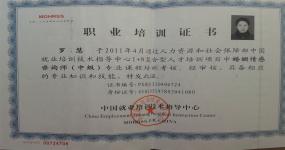 MOHRSS
职业培训证书
罗 慧 于2011年4月通过人力资源和社会保障部中国
就业培训技术指导中心1+N复合型人才培训项目中婚姻情感
咨询师（中级）专业课程培训考核，经审核，具备相应
的专业知识和技能。特发此证。
证书编号:
身份证号:
中国就业培训技术指导中心
China Employment Training Technical Instruction Center
MOHRSS, P.R.CHINA